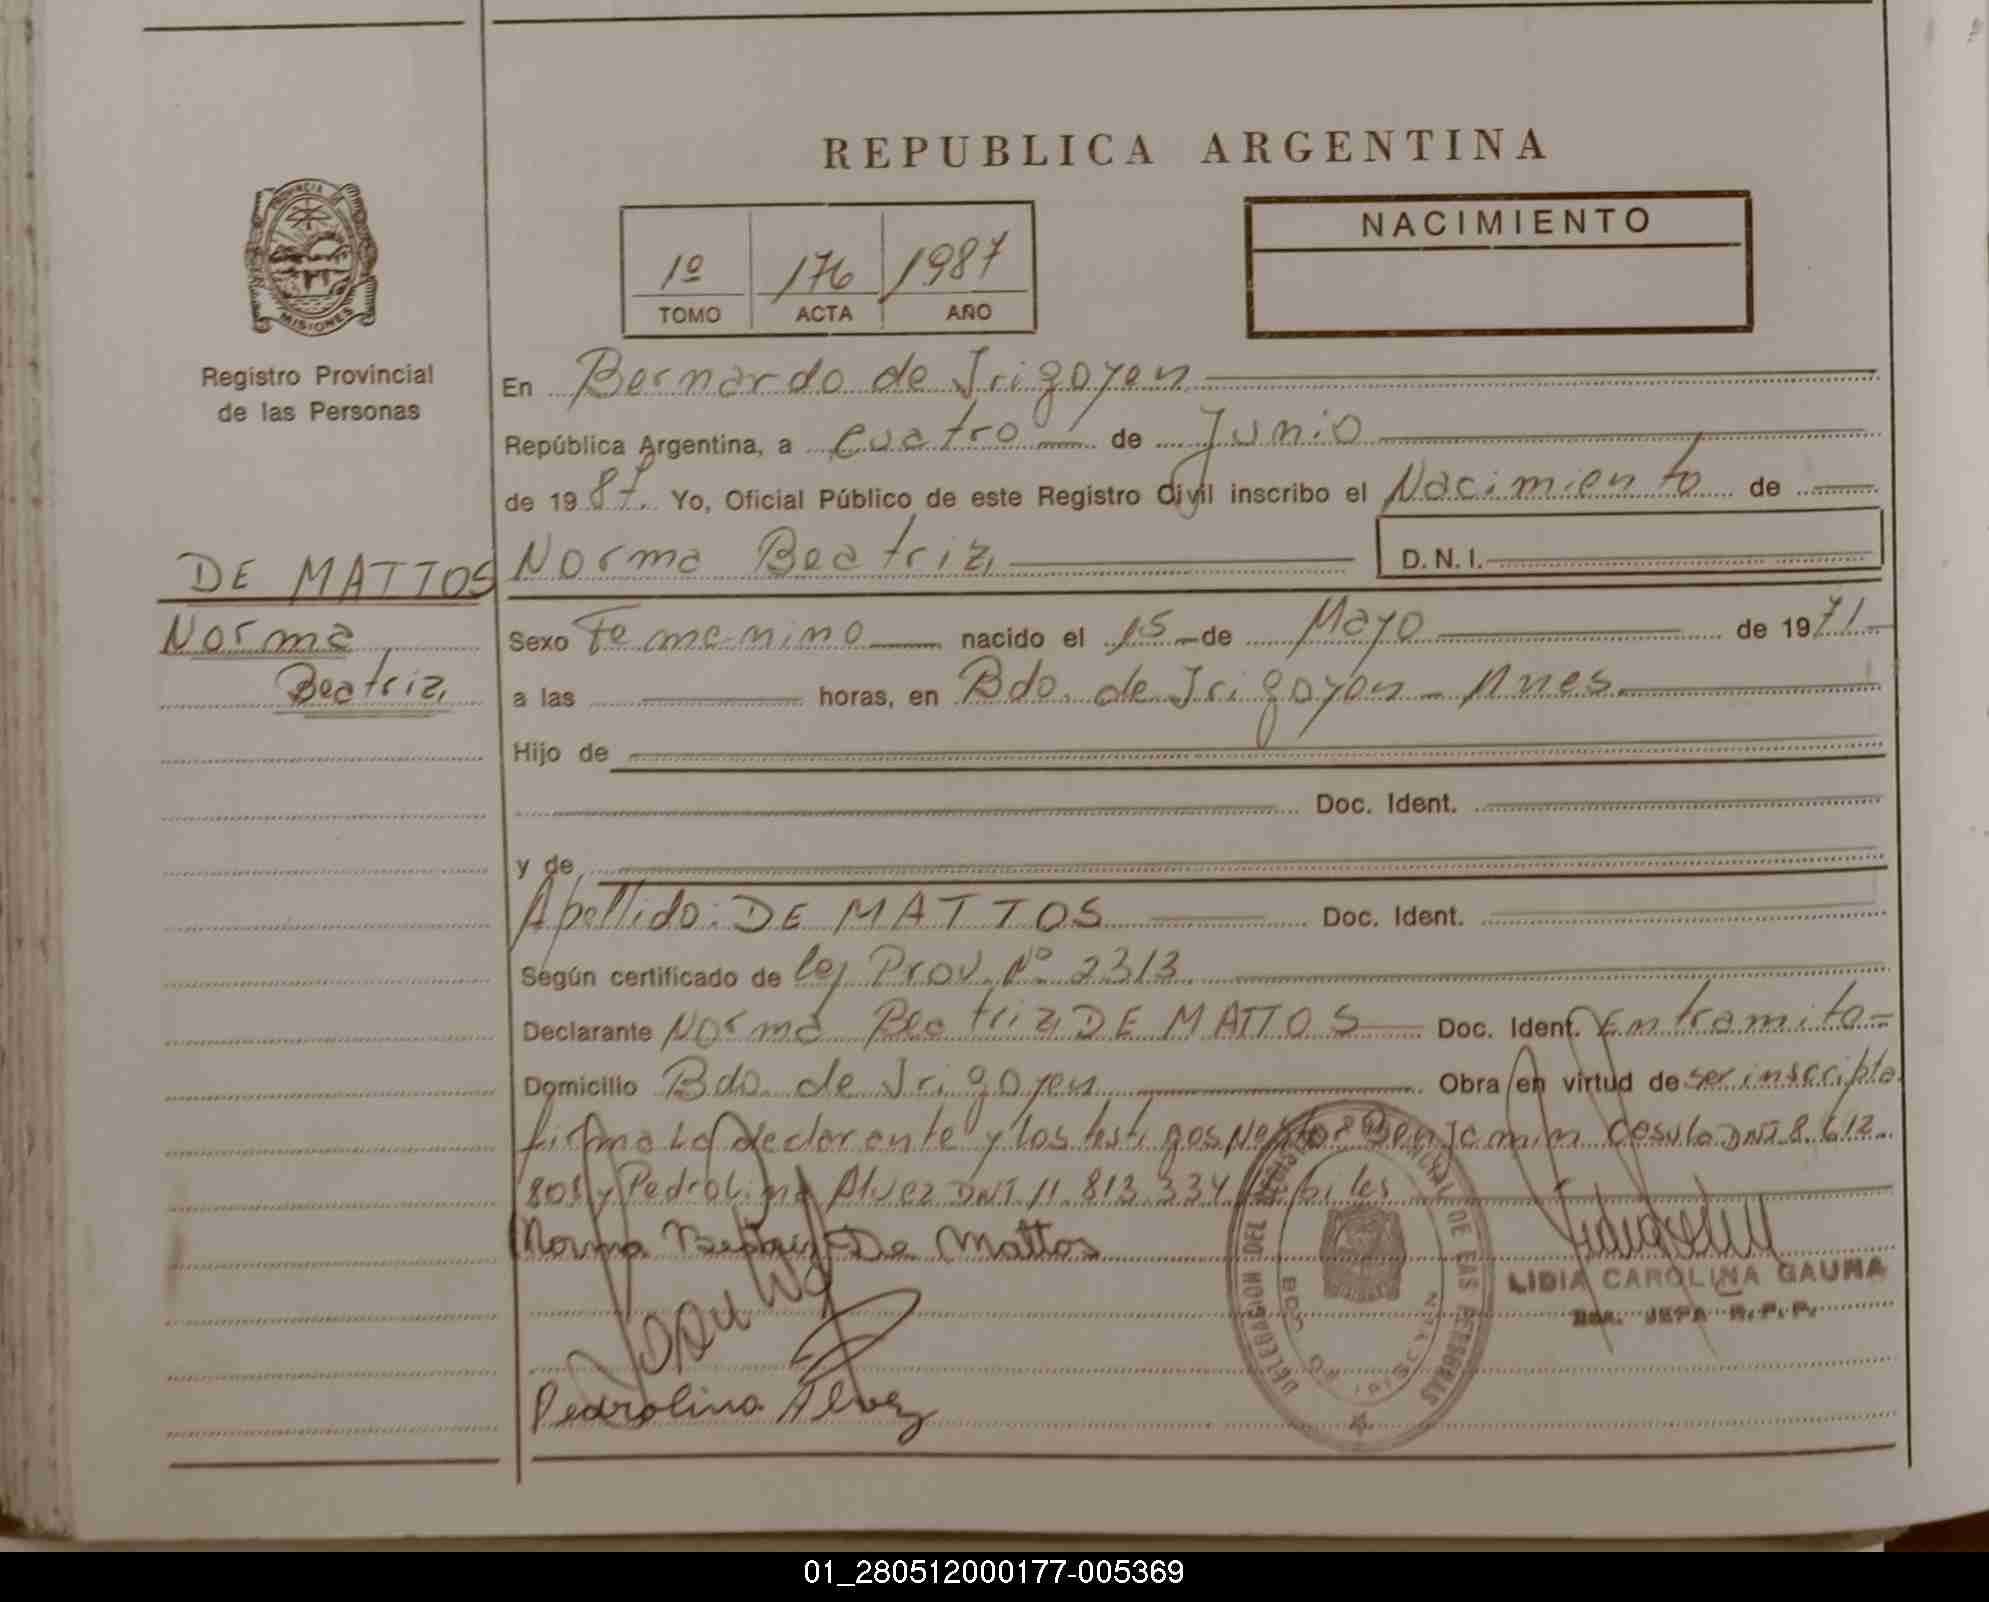 REPUBLICA ARGENTINA
NACIMIENTO
1º 176 1987
TOMO ACTA AÑO
PROVINCIA DE
MISIONES
Registro Provincial
de las Personas
En Bernardo de Irigoyen
República Argentina, a cuatro de Junio
de 1987. Yo, Oficial Público de este Registro Civil inscribo el Nacimiento de
DE MATTOS
Norma
Beatriz
Norma Beatriz D.N.I.
Sexo Femenino nacido el 15 de Mayo de 1971
a las horas, en Bdo. de Irigoyen - Mnes.
Hijo de
Doc. Ident.
y de
Apellido: DE MATTOS Doc. Ident.
Según certificado de ley Prov. Nº 2313
Declarante Norma Beatriz DE MATTOS Doc. Ident. En tramite-
Domicilio Bdo. de Irigoyen Obra en virtud de ser inscripta
firma La declarante y los testigos Benjamin DNI 8.612.
805 y Pedrolina Alvez DNI 11.813.334
Norma Beatriz De Mattos
Pedrolina Alvez
DELEGACION DEL REGISTRO PROVINCIAL DE LAS PERSONAS
BDO. DE IRIGOYEN
LIDIA CAROLINA GAUNA
JEFA R.P.P.
01_280512000177-005369